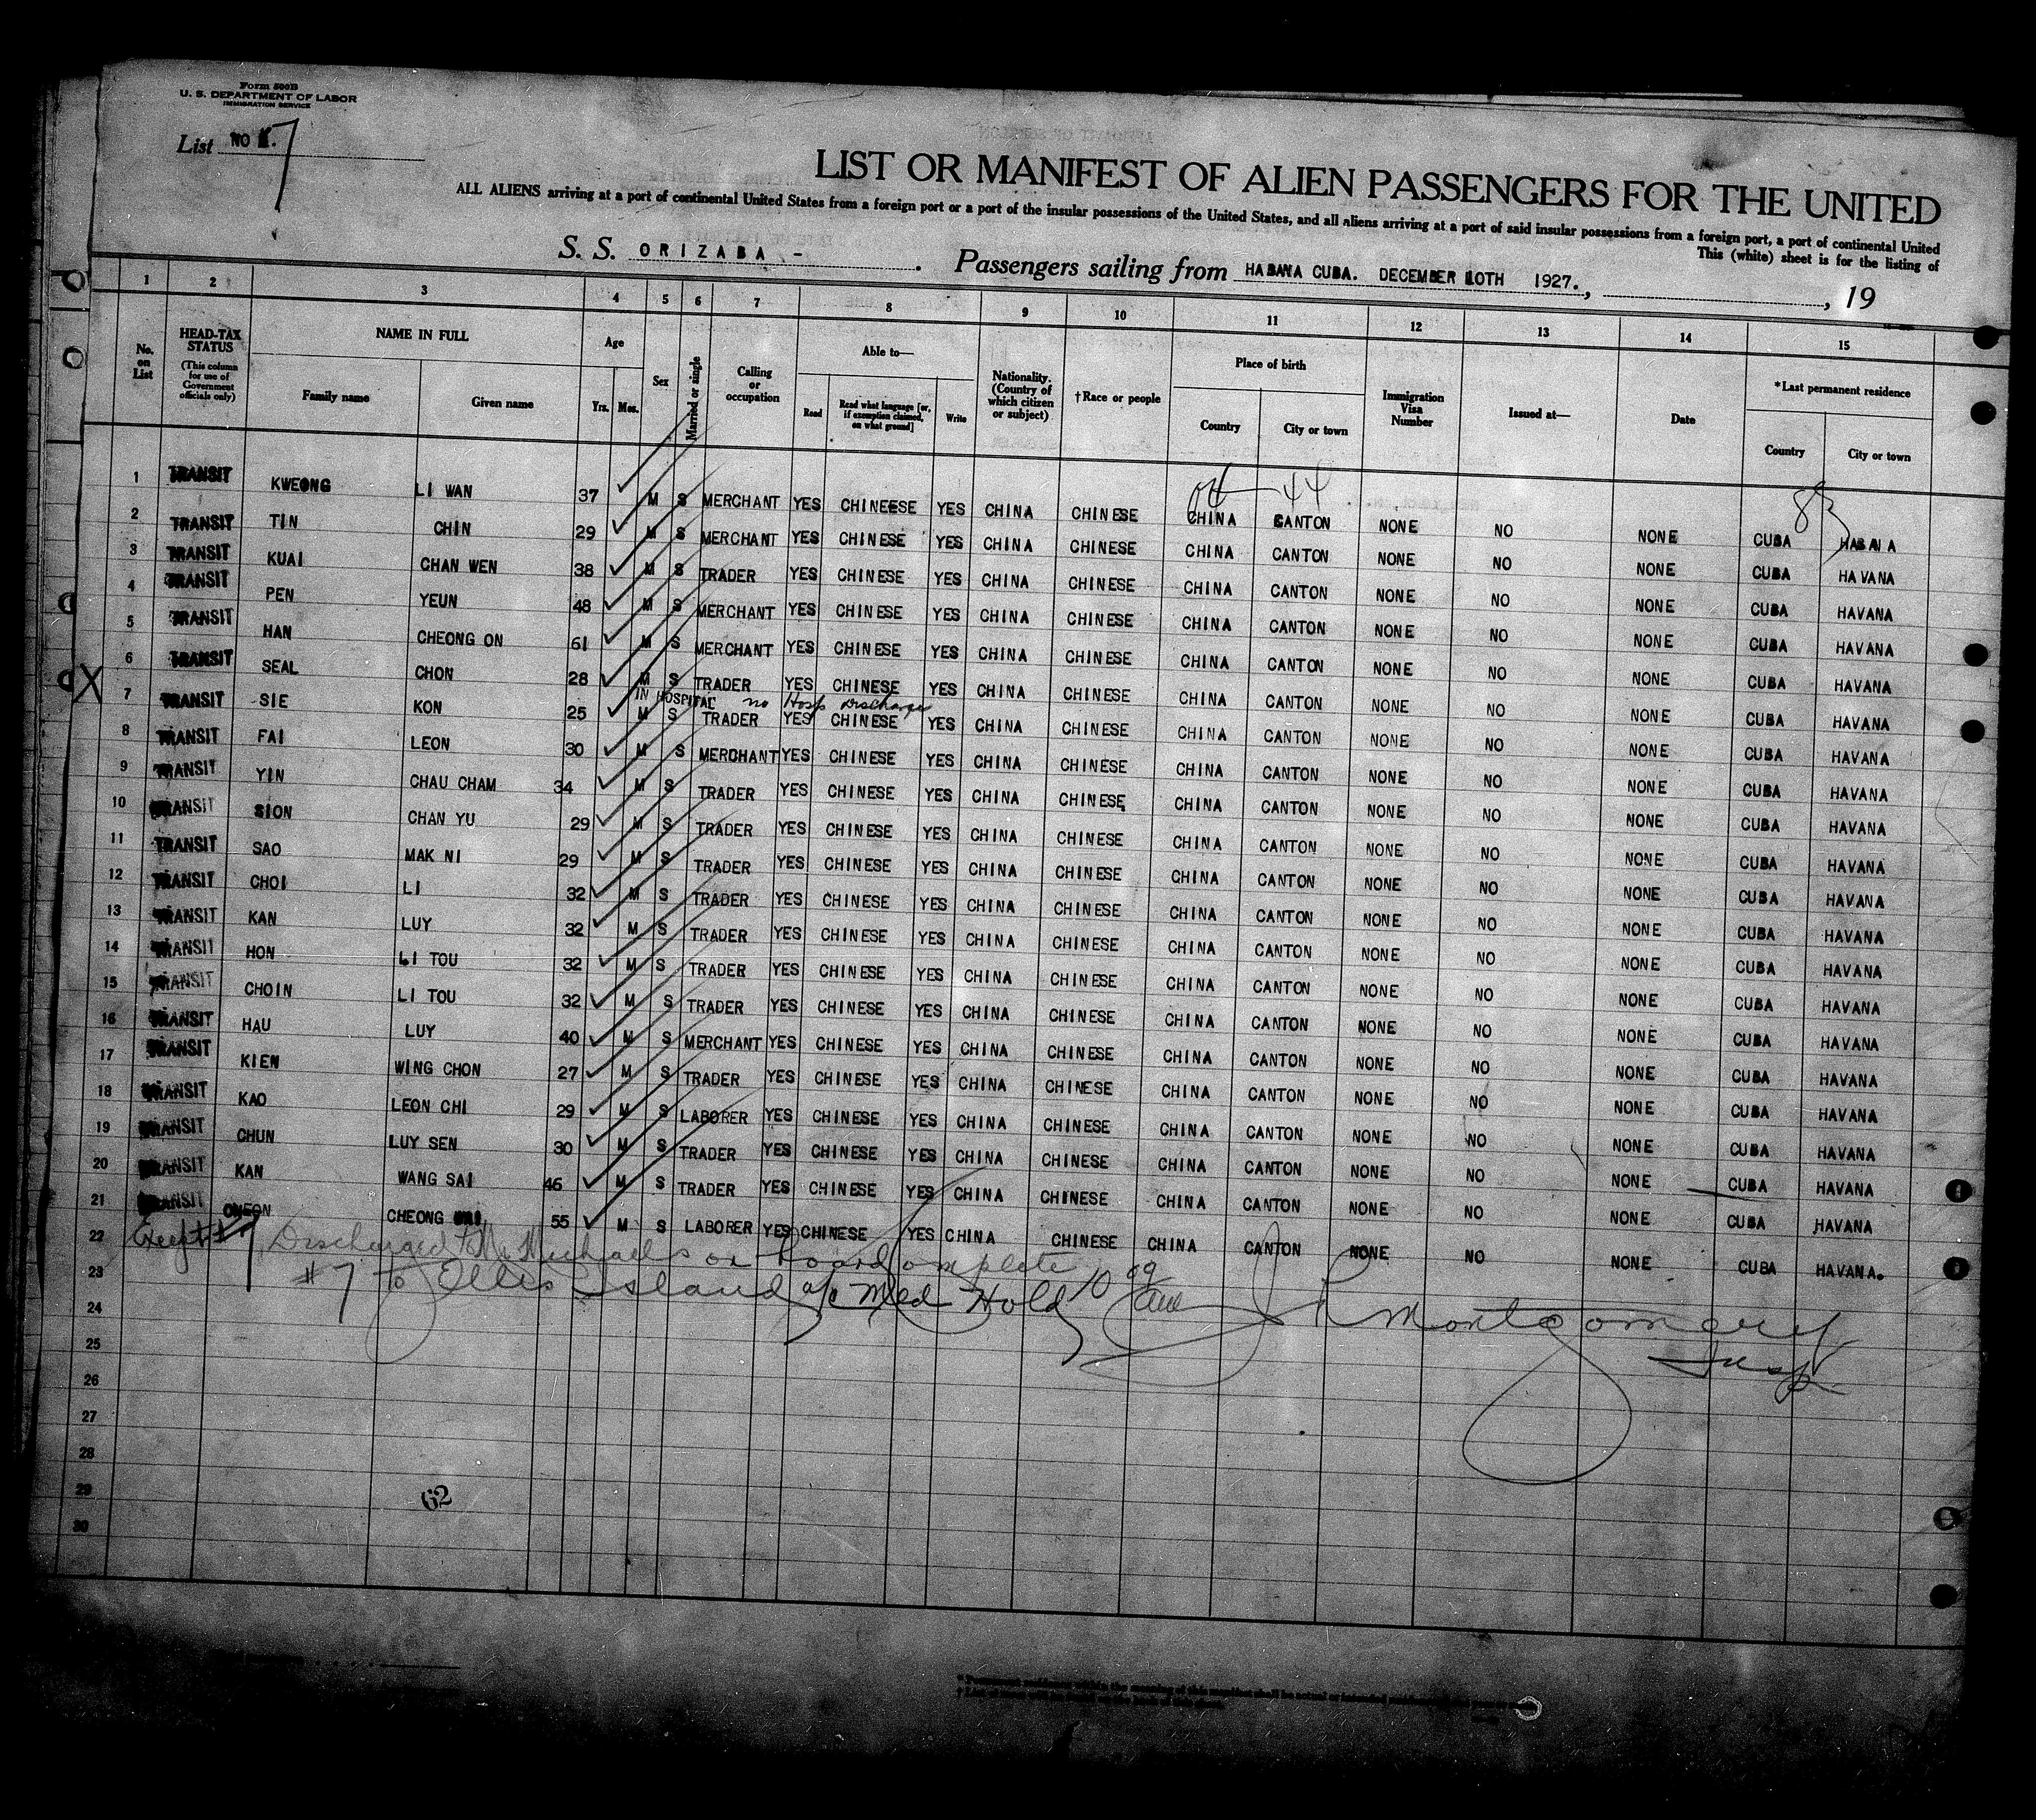 Form 500B
U. S. DEPARTMENT OF LABOR
IMMIGRATION SERVICE
List NO 7
LIST OR MANIFEST OF ALIEN PASSENGERS FOR THE UNITED
ALL ALIENS arriving at a port of continental United States from a foreign port or a port of the insular possessions of the United States, and all aliens arriving at a port of said insular possessions from a foreign port, a port of continental United
This (white) sheet is for the listing of
S. S. ORIZABA - . Passengers sailing from HABANA CUBA. DECEMBER 10TH 1927. , , 19
1 2 3 4 5 6 7 8 9 10 11 12 13 14 15
No. on List HEAD-TAX STATUS (This column for use of Government officials only) NAME IN FULL Family name Given name Age Yrs. Mos. Sex Married or single Calling or occupation Able to— Read Read what language [or, if exemption claimed, on what ground] Write Nationality. (Country of which citizen or subject) †Race or people Place of birth Country City or town Immigration Visa Number Issued at— Date *Last permanent residence Country City or town
44 83
1 TRANSIT KWEONG LI WAN 37 M S MERCHANT YES CHINEESE YES CHINA CHINESE CHINA CANTON NONE NO NONE CUBA HABANA
2 TRANSIT TIN CHIN 29 M S MERCHANT YES CHINESE YES CHINA CHINESE CHINA CANTON NONE NO NONE CUBA HAVANA
3 TRANSIT KUAI CHAN WEN 38 M S TRADER YES CHINESE YES CHINA CHINESE CHINA CANTON NONE NO NONE CUBA HAVANA
4 TRANSIT PEN YEUN 48 M S MERCHANT YES CHINESE YES CHINA CHINESE CHINA CANTON NONE NO NONE CUBA HAVANA
5 TRANSIT HAN CHEONG ON 61 M S MERCHANT YES CHINESE YES CHINA CHINESE CHINA CANTON NONE NO NONE CUBA HAVANA
6 TRANSIT SEAL CHON 28 M S TRADER YES CHINESE YES CHINA CHINESE CHINA CANTON NONE NO NONE CUBA HAVANA
IN HOSPITAL no Hosp discharge
X 7 TRANSIT SIE KON 25 M S TRADER YES CHINESE YES CHINA CHINESE CHINA CANTON NONE NO NONE CUBA HAVANA
8 TRANSIT FAI LEON 30 M S MERCHANT YES CHINESE YES CHINA CHINESE CHINA CANTON NONE NO NONE CUBA HAVANA
9 TRANSIT YIN CHAU CHAM 34 M S TRADER YES CHINESE YES CHINA CHINESE CHINA CANTON NONE NO NONE CUBA HAVANA
10 TRANSIT SION CHAN YU 29 M S TRADER YES CHINESE YES CHINA CHINESE CHINA CANTON NONE NO NONE CUBA HAVANA
11 TRANSIT SAO MAK NI 29 M S TRADER YES CHINESE YES CHINA CHINESE CHINA CANTON NONE NO NONE CUBA HAVANA
12 TRANSIT CHOI LI 32 M S TRADER YES CHINESE YES CHINA CHINESE CHINA CANTON NONE NO NONE CUBA HAVANA
13 TRANSIT KAN LUY 32 M S TRADER YES CHINESE YES CHINA CHINESE CHINA CANTON NONE NO NONE CUBA HAVANA
14 TRANSIT HON LI TOU 32 M S TRADER YES CHINESE YES CHINA CHINESE CHINA CANTON NONE NO NONE CUBA HAVANA
15 TRANSIT CHOIN LI TOU 32 M S TRADER YES CHINESE YES CHINA CHINESE CHINA CANTON NONE NO NONE CUBA HAVANA
16 TRANSIT HAU LUY 40 M S MERCHANT YES CHINESE YES CHINA CHINESE CHINA CANTON NONE NO NONE CUBA HAVANA
17 TRANSIT KIEN WING CHON 27 M S TRADER YES CHINESE YES CHINA CHINESE CHINA CANTON NONE NO NONE CUBA HAVANA
18 TRANSIT KAO LEON CHI 29 M S LABORER YES CHINESE YES CHINA CHINESE CHINA CANTON NONE NO NONE CUBA HAVANA
19 TRANSIT CHUN LUY SEN 30 M S TRADER YES CHINESE YES CHINA CHINESE CHINA CANTON NONE NO NONE CUBA HAVANA
20 TRANSIT KAN WANG SAI 46 M S TRADER YES CHINESE YES CHINA CHINESE CHINA CANTON NONE NO NONE CUBA HAVANA
21 TRANSIT CHEONG 55 M S LABORER YES CHINESE YES CHINA CHINESE CHINA CANTON NONE NO NONE CUBA HAVANA.
22 Except #7 Discharged to Mr Michaels on board complete
23 #7 to Ellis Island a/c Med Hold 10 Montgomery
24 Insp
25
26
27
28
29 62
30